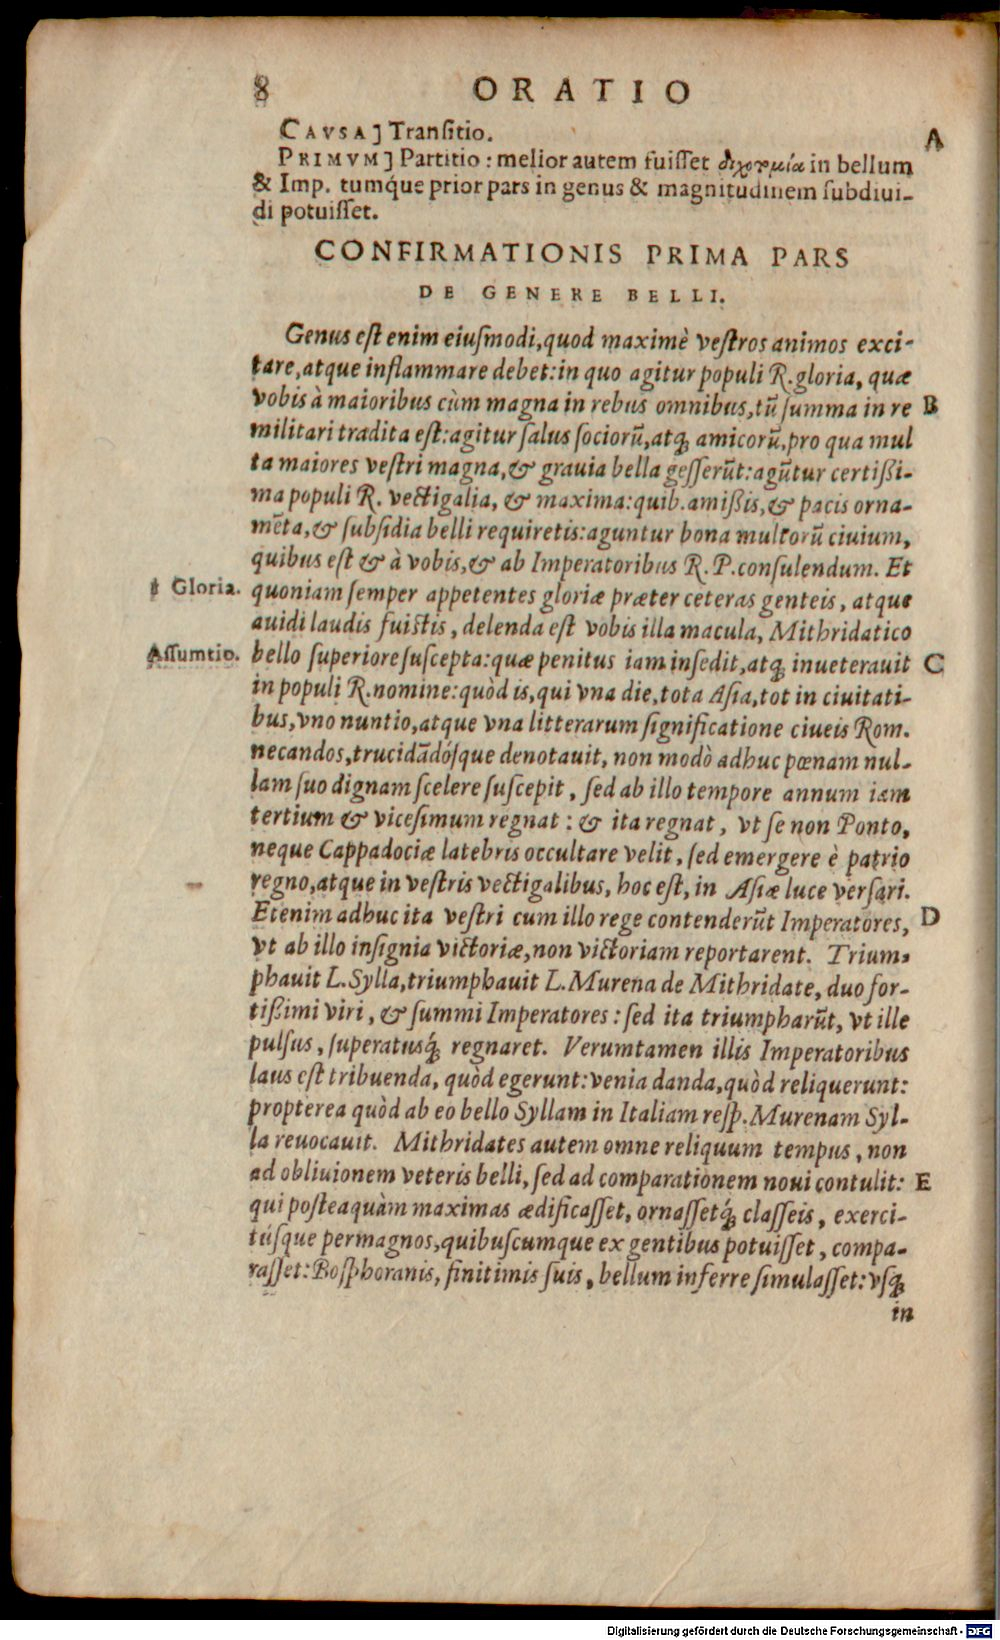 8 ORATIO
CAVSA] Tranſitio.
A
PRIMVM] Partitio: melior autem fuiſſet διχοτομία in bellum
& Imp. tumq́ue prior pars in genus & magnitudinem ſubdiui-
di potuiſſet.
CONFIRMATIONIS PRIMA PARS
DE GENERE BELLI.
Genus eſt enim eiuſmodi, quod maximè veſtros animos exci-
tare, atque inflammare debet: in quo agitur populi R. gloria, quæ
vobis à maioribus cùm magna in rebus omnibus, tū ſumma in re B
militari tradita eſt: agitur ſalus ſociorū, atq; amicorū, pro qua mul
ta maiores veſtri magna, & grauia bella geſſerūt: agūtur certißi-
ma populi R. vectigalia, & maxima: quib. amißis, & pacis orna-
mēta, & ſubſidia belli requiretis: aguntur bona multorū ciuium,
quibus eſt & à vobis, & ab Imperatoribus R. P. conſulendum. Et
1 Gloria. quoniam ſemper appetentes gloriæ præter ceteras genteis, atque
auidi laudis fuiſtis, delenda eſt vobis illa macula, Mithridatico
Aſſumtio. bello ſuperiore ſuſcepta: quæ penitus iam inſedit, atq; inueterauit C
in populi R. nomine: quòd is, qui vna die, tota Aſia, tot in ciuitati-
bus, vno nuntio, atque vna litterarum ſignificatione ciueis Rom.
necandos, trucidādóſque denotauit, non modò adhuc pœnam nul-
lam ſuo dignam ſcelere ſuſcepit, ſed ab illo tempore annum iam
tertium & viceſimum regnat: & ita regnat, vt ſe non Ponto,
neque Cappadociæ latebris occultare velit, ſed emergere è patrio
regno, atque in veſtris vectigalibus, hoc eſt, in Aſiæ luce verſari.
Etenim adhuc ita veſtri cum illo rege contenderūt Imperatores, D
vt ab illo inſignia victoriæ, non victoriam reportarent. Trium-
phauit L. Sylla, triumphauit L. Murena de Mithridate, duo for-
tißimi viri, & ſummi Imperatores: ſed ita triumpharūt, vt ille
pulſus, ſuperatusq́; regnaret. Verumtamen illis Imperatoribus
laus eſt tribuenda, quòd egerunt: venia danda, quòd reliquerunt:
propterea quòd ab eo bello Syllam in Italiam reſp. Murenam Syl-
la reuocauit. Mithridates autem omne reliquum tempus, non
ad obliuionem veteris belli, ſed ad comparationem noui contulit: E
qui poſteaquàm maximas ædificaſſet, ornaſſetq́; claſſeis, exerci-
túſque permagnos, quibuſcumque ex gentibus potuiſſet, compa-
raſſet: Boſphoranis, finitimis ſuis, bellum inferre ſimulaſſet: vſq;
in
Digitalisierung gefördert durch die Deutsche Forschungsgemeinschaft - DFG